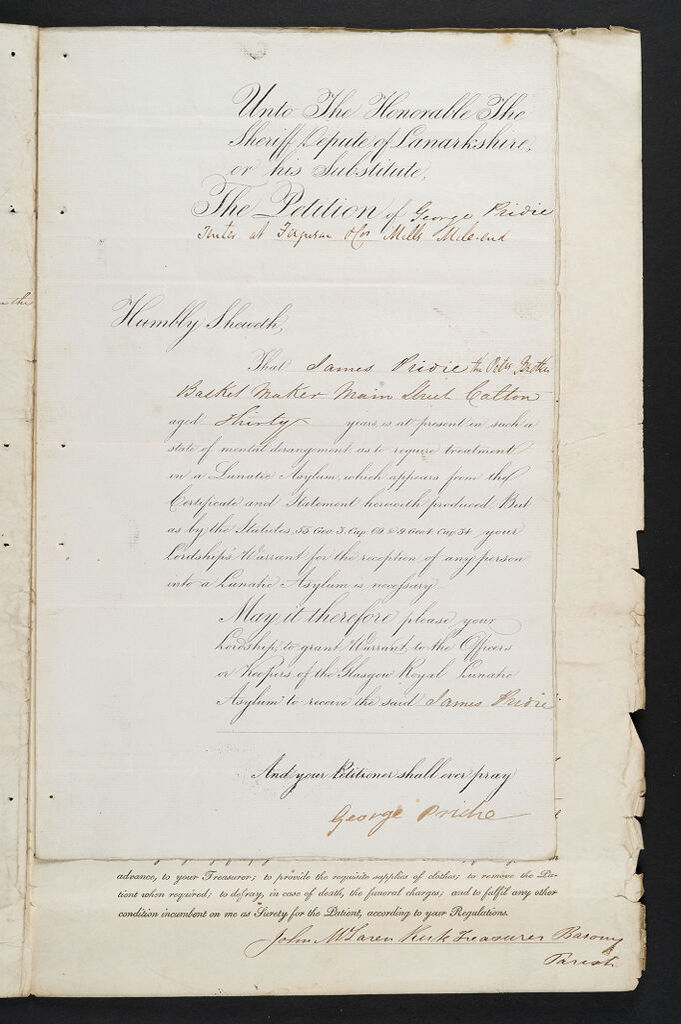 Unto The Honorable The
Sheriff Depute of Lanarkshire,
or his Substitute,
The Petition of George Pridie
at Ferguson & Cos Mills Mile-end
Humbly Sheweth,
That James Pridie the Petrs Brother
Basket Maker Main Street Calton
aged Thirty years, is at present in such a
state of mental derangement as to require treatment
in a Lunatic Asylum, which appears from the
Certificate and Statement herewith produced. But
as by the Statutes, 55 Geo. 3. Cap 69 & 9 Geo 4 Cap 34 your
Lordship's Warrant for the reception of any person
into a Lunatic Asylum is necessary
May it therefore please your
Lordship, to grant Warrant, to the Officers
or Keepers of the Glasgow Royal Lunatic
Asylum to receive the said James Pridie
And your Petitioner shall ever pray
George Pridie
advance, to your Treasurer; to provide the requisite supplies of clothes; to remove the Pa-
tient when required; to defray, in case of death, the funeral charges; and to fulfil any other
condition incumbent on me as Surety for the Patient, according to your Regulations.
John McLaren Kirk Treasurer Barony
Parish